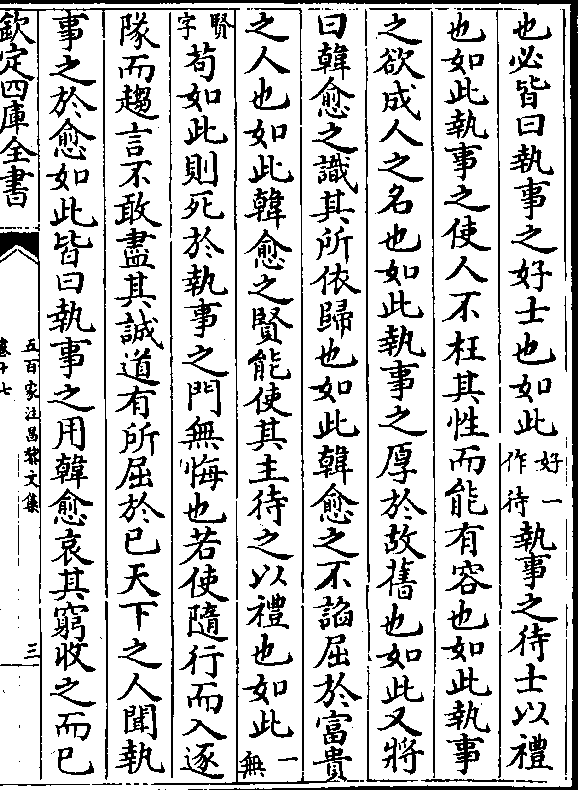 也必皆曰執事之好士也如此好一作待執事之待士以禮
也如此執事之使人不枉其性而能有容也如此執事
之欲成人之名也如此執事之厚於故舊也如此又將
曰韓愈之識其所依歸也如此韓愈之不諂屈於富貴
之人也如此韓愈之賢能使其主待之以禮也如此一無
賢字苟如此則死於執事之門無悔也若使隨行而入逐
隊而趨言不敢盡其誠道有所屈於已天下之人聞執
事之於愈如此皆曰執事之用韓愈哀其窮收之而已
欽定四庫全書
五百家注昌黎文集
卷十七
三